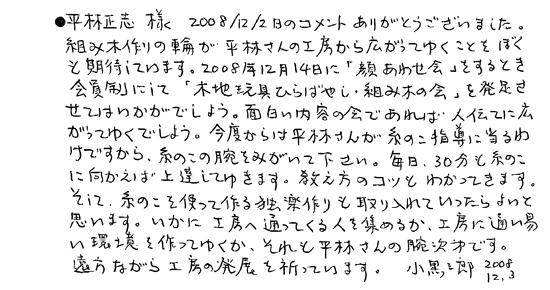 ●平林正志 様く 2008/12/2日のコメントありがとうございました。
組み木作りの輪が平林さんの工房から広がってゆくことをぼく
も期待しています。2008年12月14日に「顔あわせ会」をするとき
会員制にして「木地玩具ひらばやし・組み木の会」を発足さ
せてはいかがでしょう。面白い内容の会であれば人伝てに広
がってゆくでしょう。今度からは平林さんが糸のこ指導に当るわ
けですから、糸のこの腕をみがいて下さい。毎日、30分も糸のこ
に向かえば上達してゆきます。教え方のコツもわかってきます。
そして、糸のこを使って作る独楽作りも取り入れていったらよいと
思います。いかに工房へ通ってくる人を集めるか、工房に通い易
い環境を作ってゆくか、それも平林さんの腕次才です。
遠方ながら工房の発展を祈っています。 小黒三郎 2008 12.3